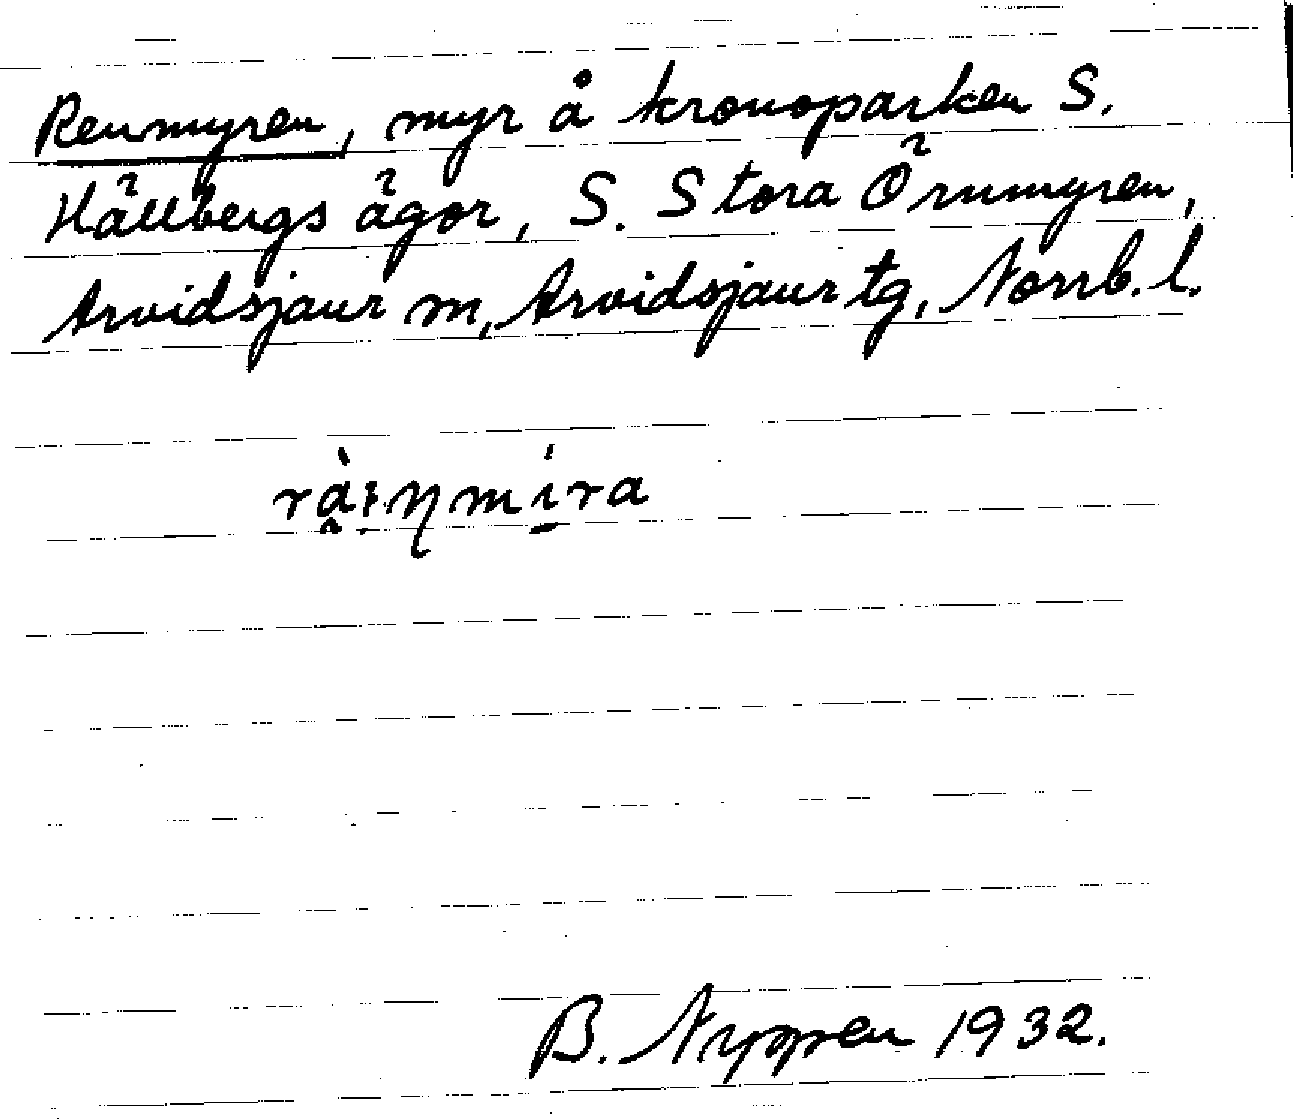 Renmyren, myr å kronoparken S.
Hällbergs ägor, S. Stora Örnmyren,
Arvidsjaur m, Arvidsjaur tg, Norrb. l.
B. Nyppen 1932.